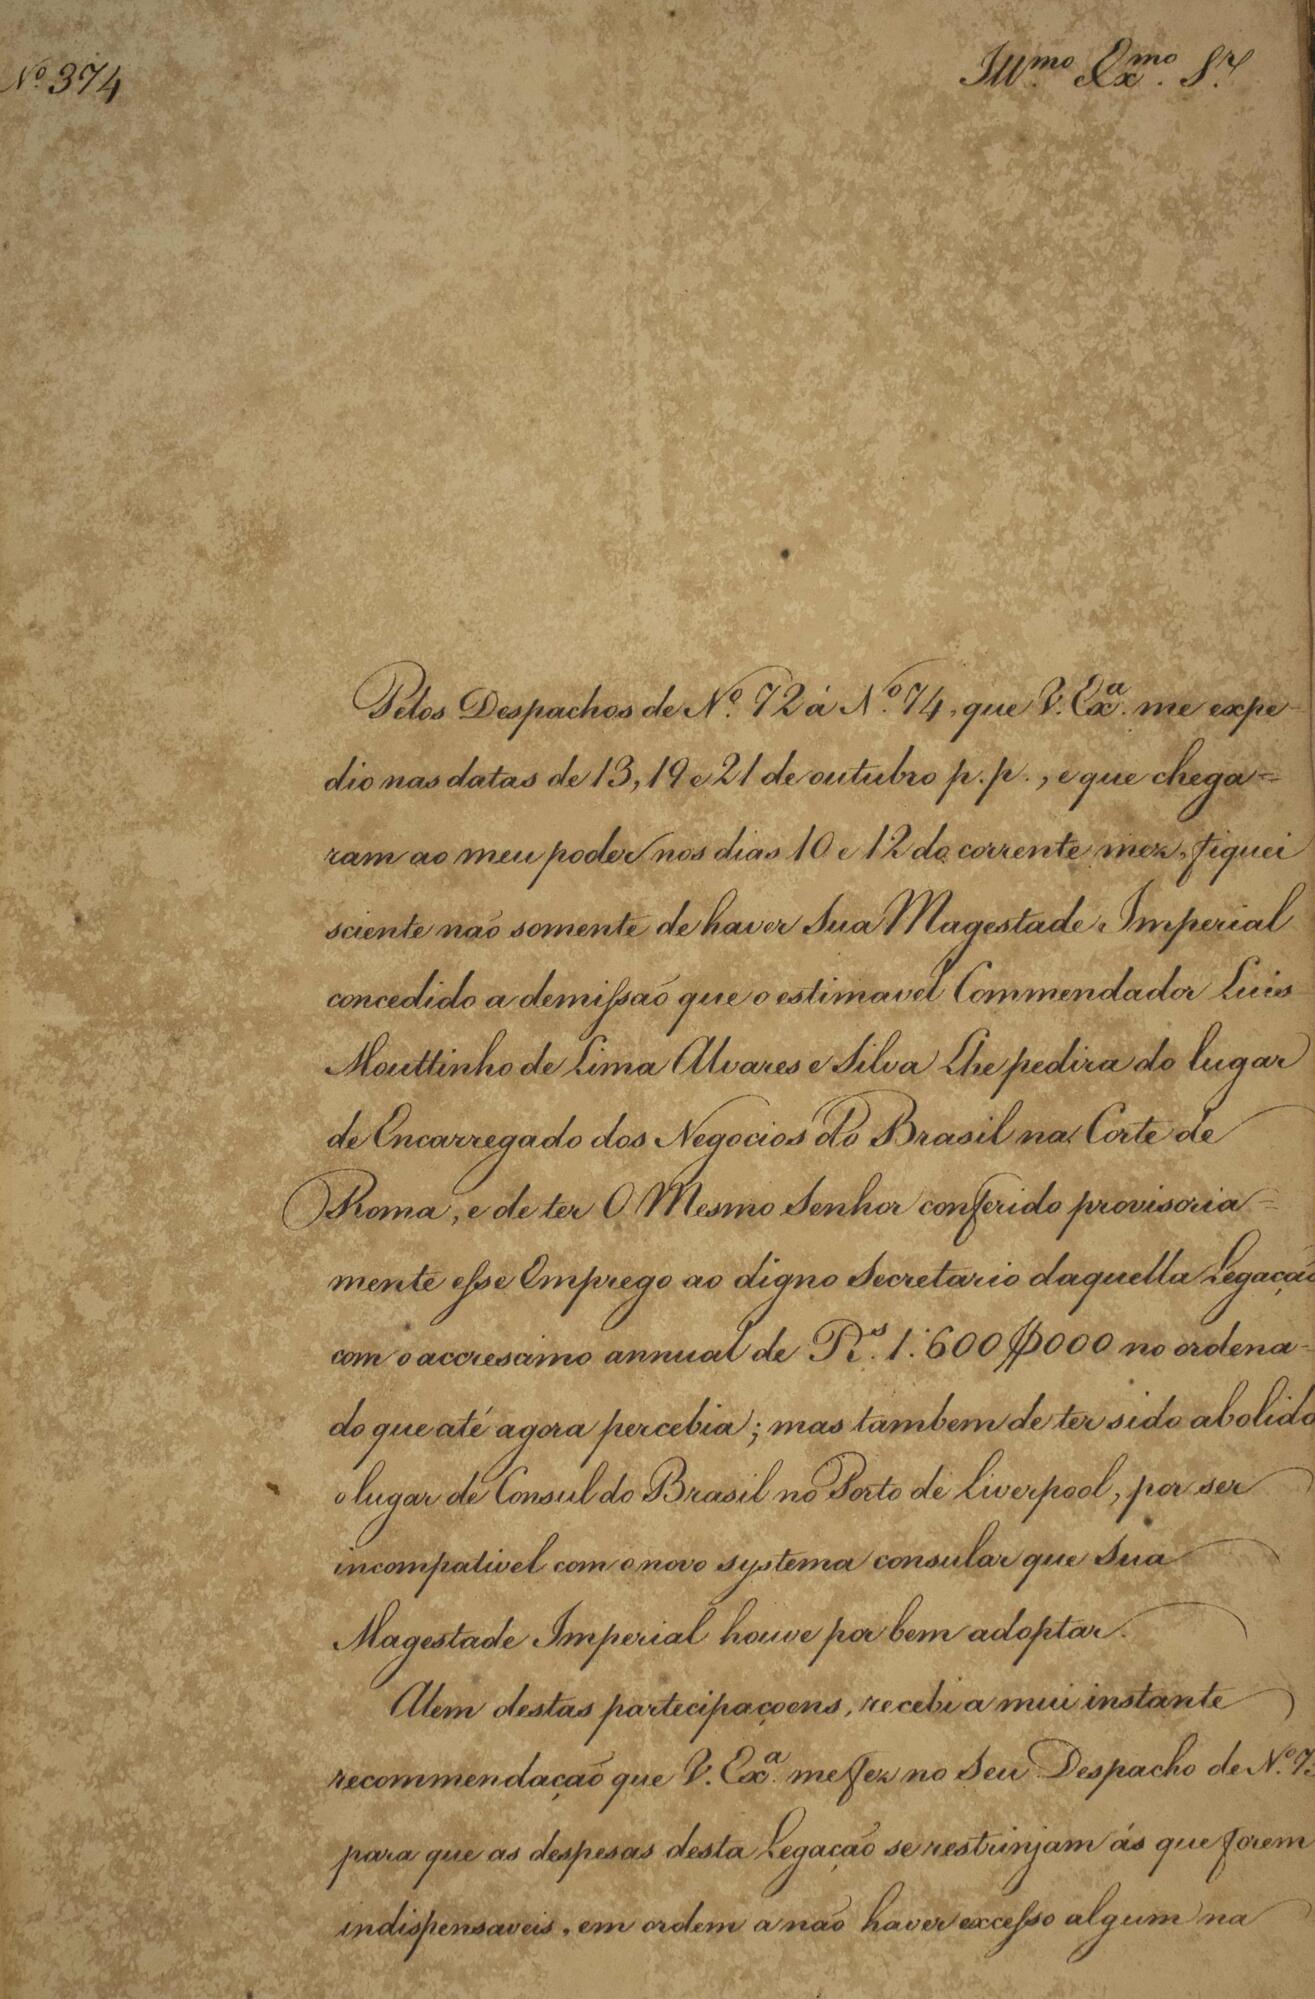 Nº 374
Illmo. Exmo. Sr.
Pelos Despachos de Nº. 72 á Nº. 74, que V. Exa. me expe-
dio nas datas de 13, 19 e 21 de outubro p. p., e que chega=
ram ao meu poder nos dias 10 e 12 do corrente mez, fiquei
sciente naõ somente de haver Sua Magestade Imperial
concedido a demissaõ que o estimavel Commendador Luis
Mouttinho de Lima Alvares e Silva Lhe pedira do lugar
de Encarregado dos Negocios do Brasil na Corte de
Roma, e de ter O Mesmo Senhor conferido provisoria=
mente esse Emprego ao digno Secretario daquella Legaçaõ
com o accrescimo annual de Rs. 1:600$000 no ordena-
do que até agora percebia; mas tambem de ter sido abolido
o lugar de Consul do Brasil no Porto de Liverpool, por ser
incompativel com o novo systema consular que Sua
Magestade Imperial houve por bem adoptar.
Alem destas partecipaçoens, recebi a mui instante
recommendaçaõ que V. Exa. me fez no Seu Despacho de Nº. 73
para que as despesas desta Legaçaõ se restrinjam ás que forem
indispensaveis, em ordem a naõ haver excesso algum na